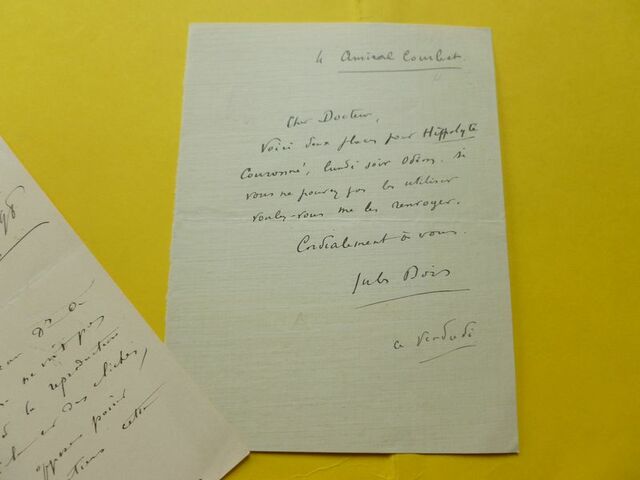 4 Amiral Courbet.
Cher Docteur,
Voici deux places pour Hippolyte
Couronné, lundi soir Odéon. Si
vous ne pouvez pas les utiliser
voulez-vous me les renvoyer.
Cordialement à vous.
Jules Bois
ce Vendredi
ne
pas
la reproduction
des clichés